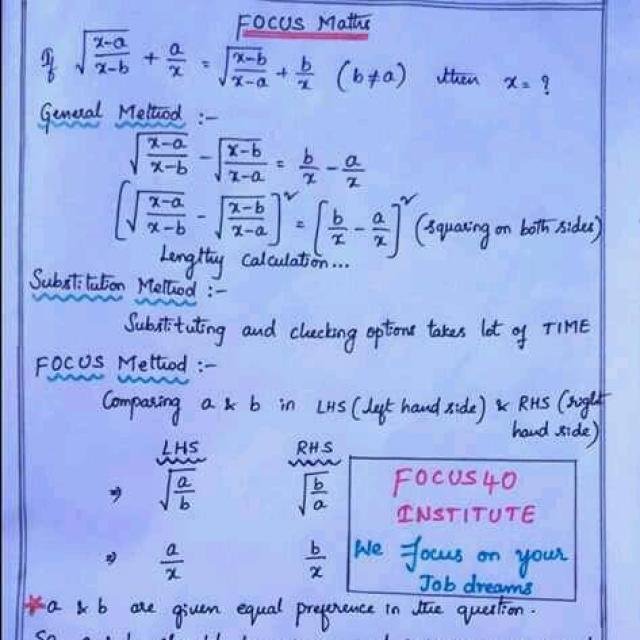 FOCUS Maths
If √(x-a/x-b) + a/x = √(x-b/x-a) + b/x (b≠a) then x = ?
General Method :-
√(x-a/x-b) - √(x-b/x-a) = b/x - a/x
[√(x-a/x-b) - √(x-b/x-a)]² = [b/x - a/x]² (squaring on both sides)
Lengthy calculation...
Substitution Method :-
Substituting and checking options takes lot of TIME
FOCUS Method :-
Comparing a & b in LHS (left hand side) & RHS (right hand side)
LHS RHS
⇒ √(a/b) √(b/a)
⇒ a/x b/x
FOCUS40
INSTITUTE
We Focus on your
Job dreams
*a & b are given equal preference in the question.